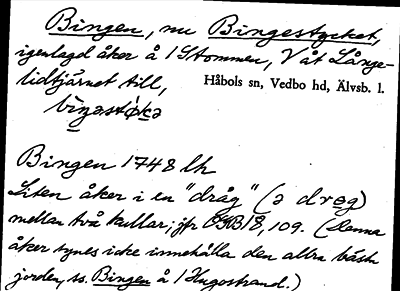 Bingen, nu Bingestycket,
igenlagd åker å 1 Stommen, V åt Långe-
lidtjärnet till,
Håbols sn, Vedbo hd, Älvsb. l.
Bingen 1748 lh
Liten åker i en "dråg" (ə drog)
mellan två kullar; jfr OGB 18, 109. (Denna
åker synes icke innehålla den allra bästa
jorden, ss. Bingen å 1 Hugostrand.)